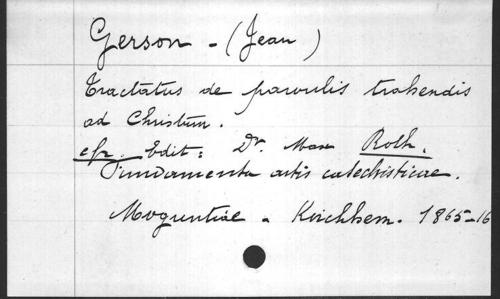 Gerson - (Jean)
Tractatus de parvulis trahendis
ad Christum.
cfr. Edit: Dr. Max Roth.
Fundamenta artis catechisticae.
Moguntiae - Kirchhem. 1865-16